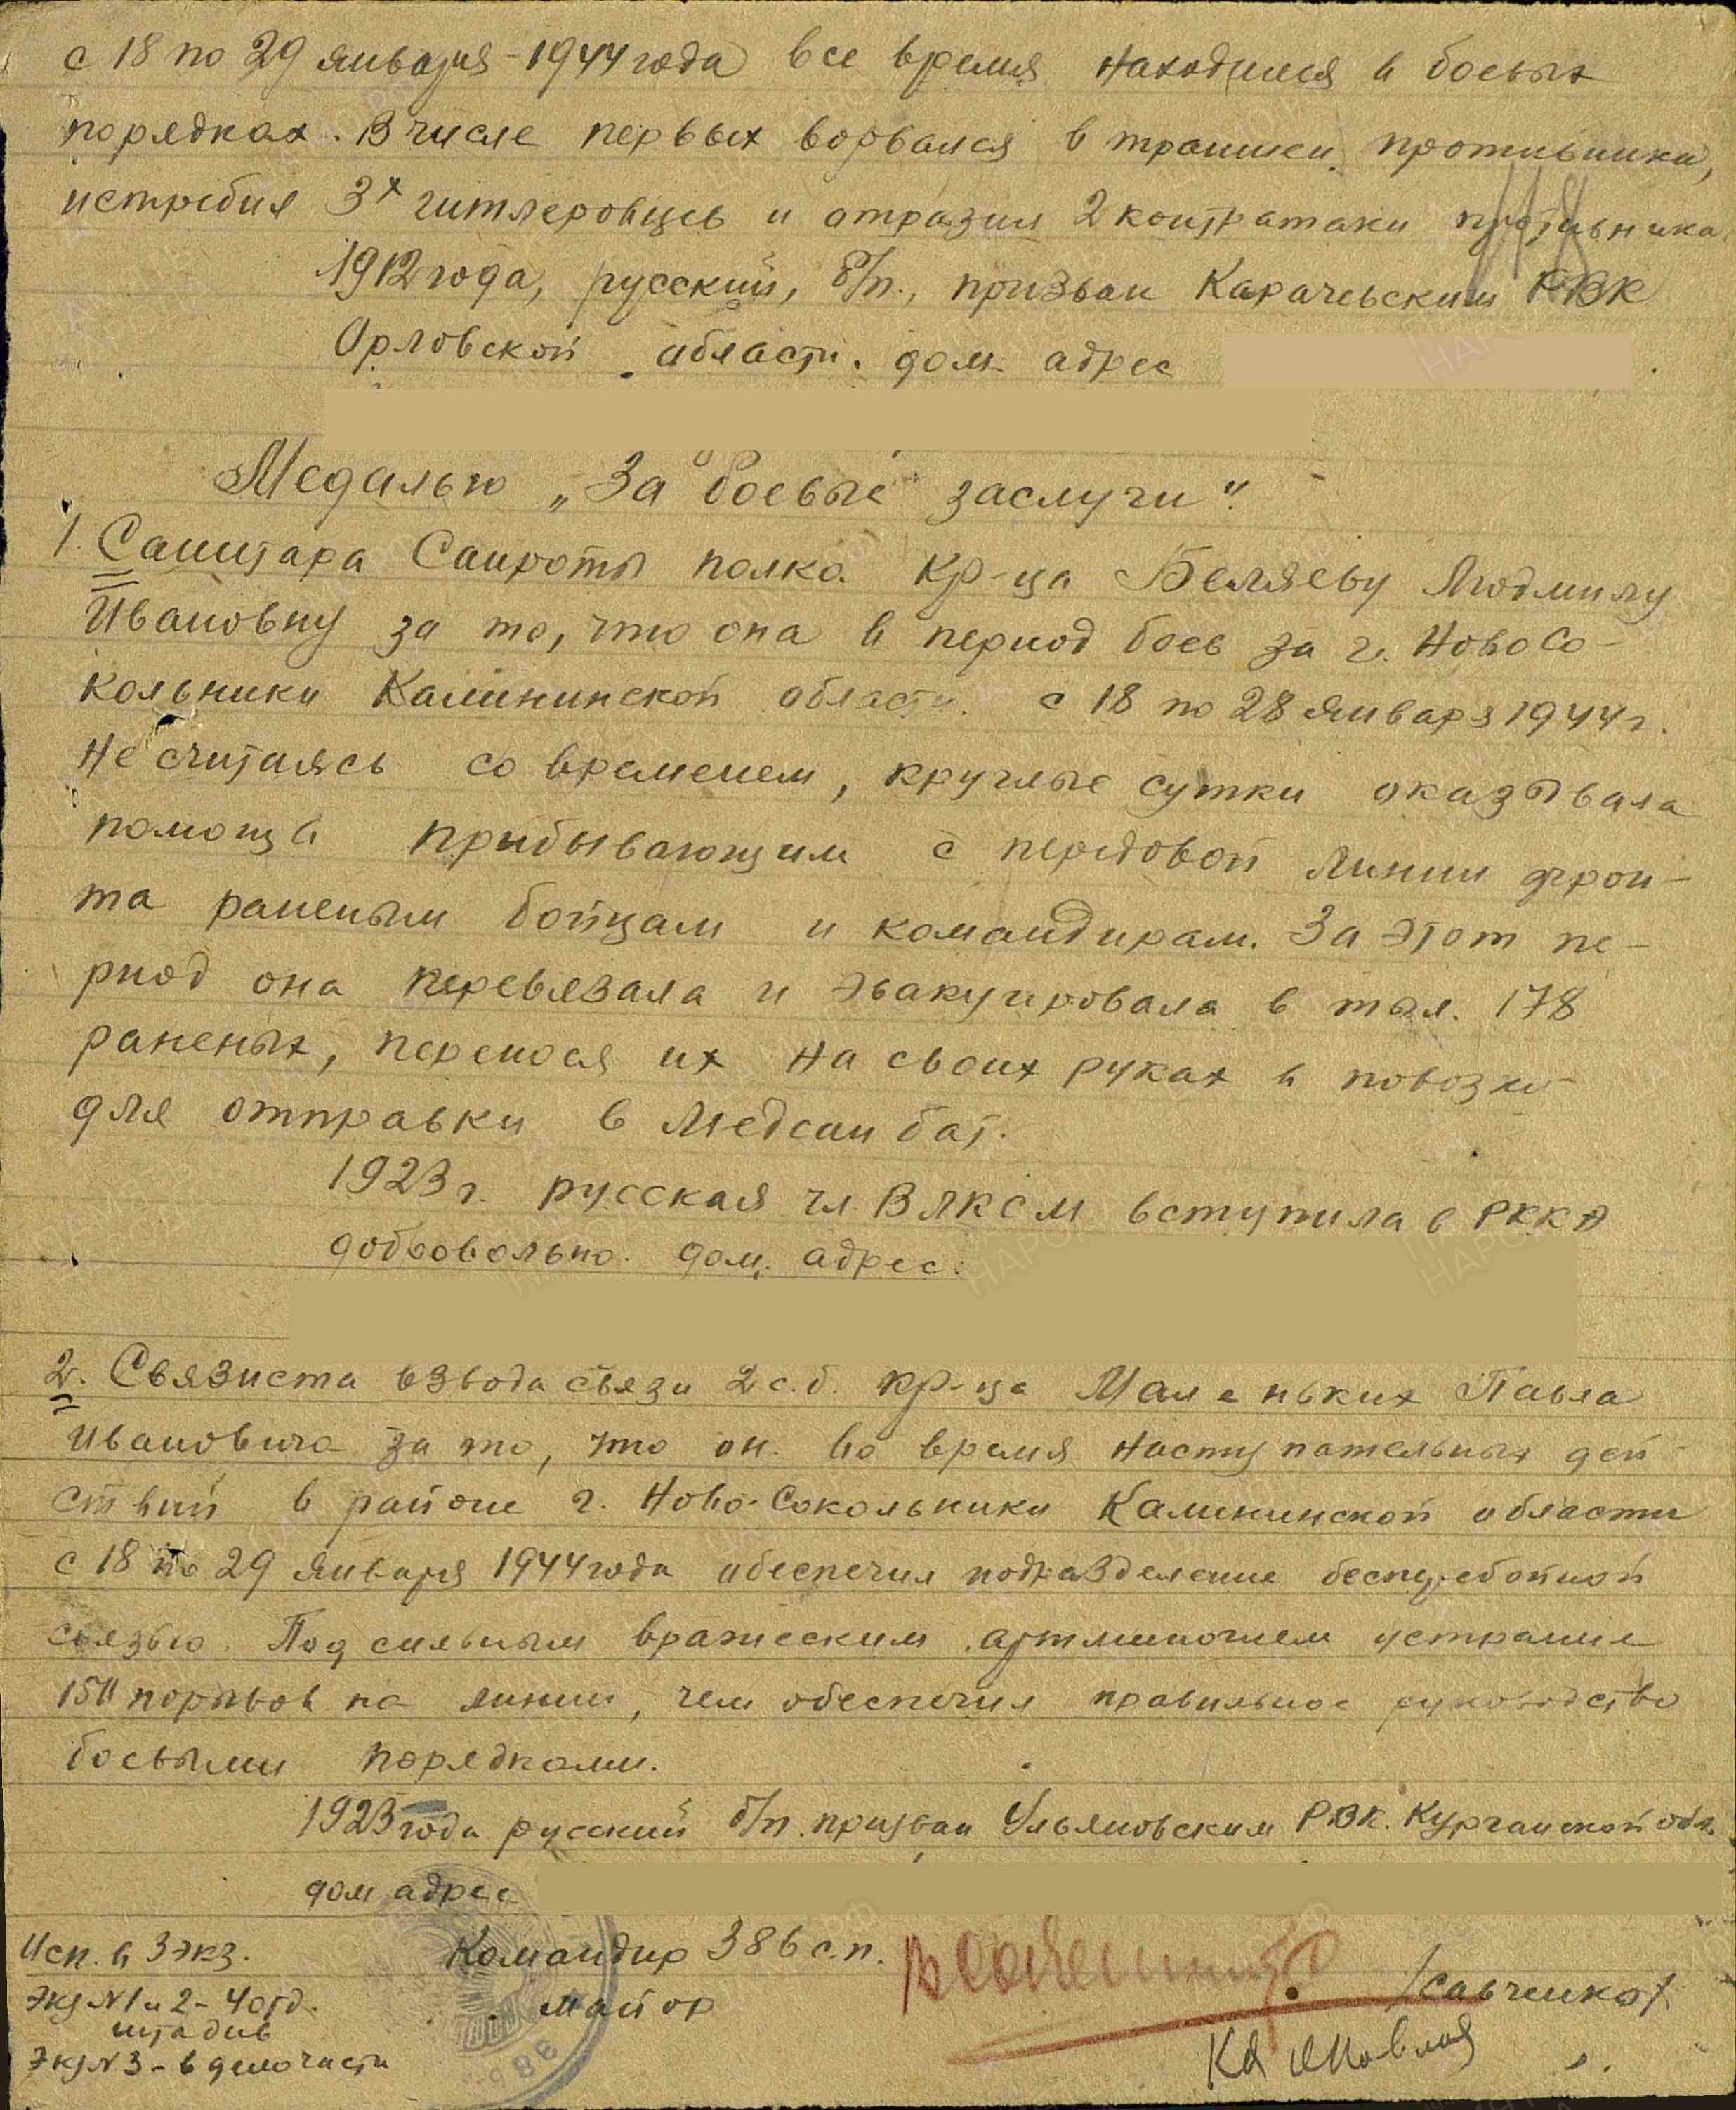 с 18 по 29 января-1944 года все время находился в боевых
порядках. В числе первых ворвался в траншеи противника,
истребил 3х гитлеровцев и отразил 2 контратаки противника
1912 года, русский, б/п., призван Карачевским РВК
Орловской области. дом. адрес
Медалью „За боевые заслуги".
1. Санитара Санроты полка кр-ца Беляеву Людмилу
Ивановну за то, что она в период боев за г. Новосо-
кольники Калининской области с 18 по 28 января 1944 г.
не считаясь со временем, круглые сутки оказывала
помощь прибывающим с передовой линии фрон-
та раненым бойцам и командирам. За этот пе-
риод она перевязала и эвакуировала в тыл. 178
раненых, перенося их на своих руках в повозки
для отправки в Медсанбат.
1923 г. русская чл ВЛКСМ вступила в РККА
добровольно. дом. адрес:
2. Связиста взвода связи 2 с.б. кр-ца Маленьких Павла
Ивановича за то, что он во время наступательных дей
ствий в районе г. Ново-Сокольники Калининской области
с 18 по 29 января 1944 года обеспечил подразделение бесперебойной
связью. Под сильным вражеским артминогнем устранил
порывов на линии, чем обеспечил правильное руководство
боевыми порядками.
1923 года русский б/п. призван Ульяновским РВК. Курганской обл.
дом адрес
Исп. в 3 экз.
Экз N 1 и 2 - 4 отд.
штадив
Экз N 3 - в дело части
Командир 386 с.п.
майор
/Савченко/